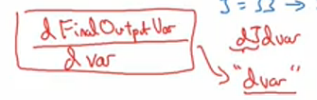 J = 33 →
d FinalOutputVar
d var
dJdvar
"dvar"